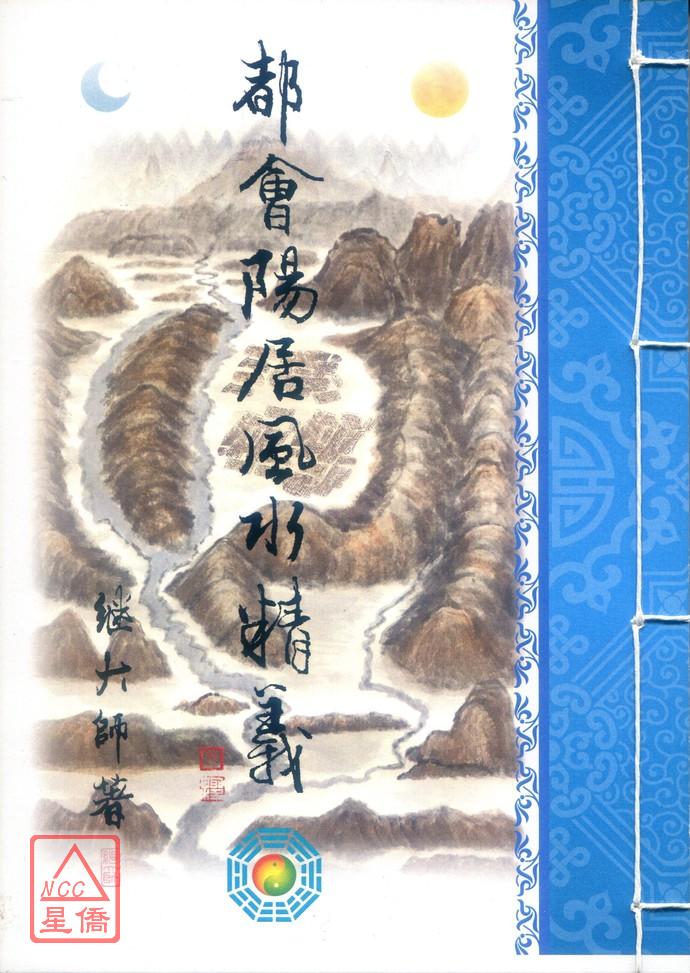 都會陽居風水精義
继大師著
NCC
星僑